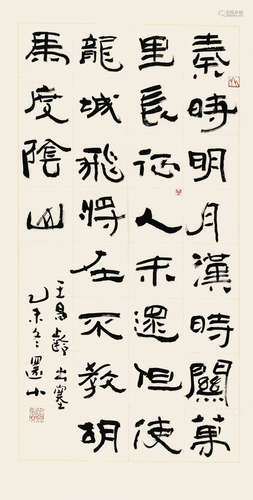 秦時明月漢時關萬
里長征人未還但使
龍城飛將在不教胡
馬度陰山
王昌齡出塞
乙未冬